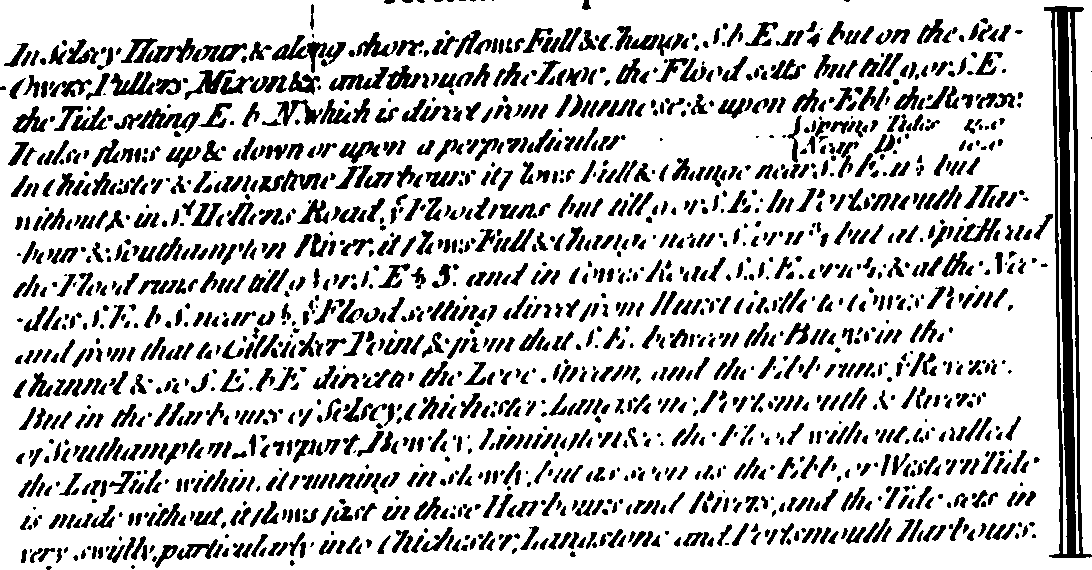 In Selsey Harbour, & along shore, it flows Full & Change, S. b. E. 11¼ but on the Sea-
Owers, Pullers, Mixon &c. and through the Looe, the Flood setts but till 9, or S. E.
the Tide setting E. b. N. which is direct from Dunnese; & upon the Ebb the Reverse
It also flows up & down or upon a perpendicular {Spring Tides 15.0
{Neap Do. 10.0
In Chichester & Langstone Harbours it flows Full & Change near S. b E. 11¼ but
without & in St. Hellens Road, ye Flood runs but till 9 or S. E: In Portsmouth Har-
bour & Southampton River, it flows Full & Change near S. or 11¾, but at Spit Head
the Flood runs but till or S. E ½ S. and in Cowes Road S.S.E. or 10½, & at the Nee-
dles S. E. b S. near 9¾, ye Flood setting direct from Hurst Castle to Cowes Point,
and from that to Gilkicker Point, & from that S. E. between the Buoys in the
Channel & so S. E. b E direct to the Looe Stream, and the Ebb runs ye Reverse.
But in the Harbours of Selsey, Chichester, Langstone, Portsmouth & Rivers
of Southampton, Newport, Bewley, Limington &c. the Flood without, is called
the Lay-Tide within, it running in slowly, but as soon as the Ebb, or Western Tide
is made without, it flows fast in these Harbours and Rivers, and the Tide sets in
very swiftly, particularly into Chichester, Langstone and Portsmouth Harbours.